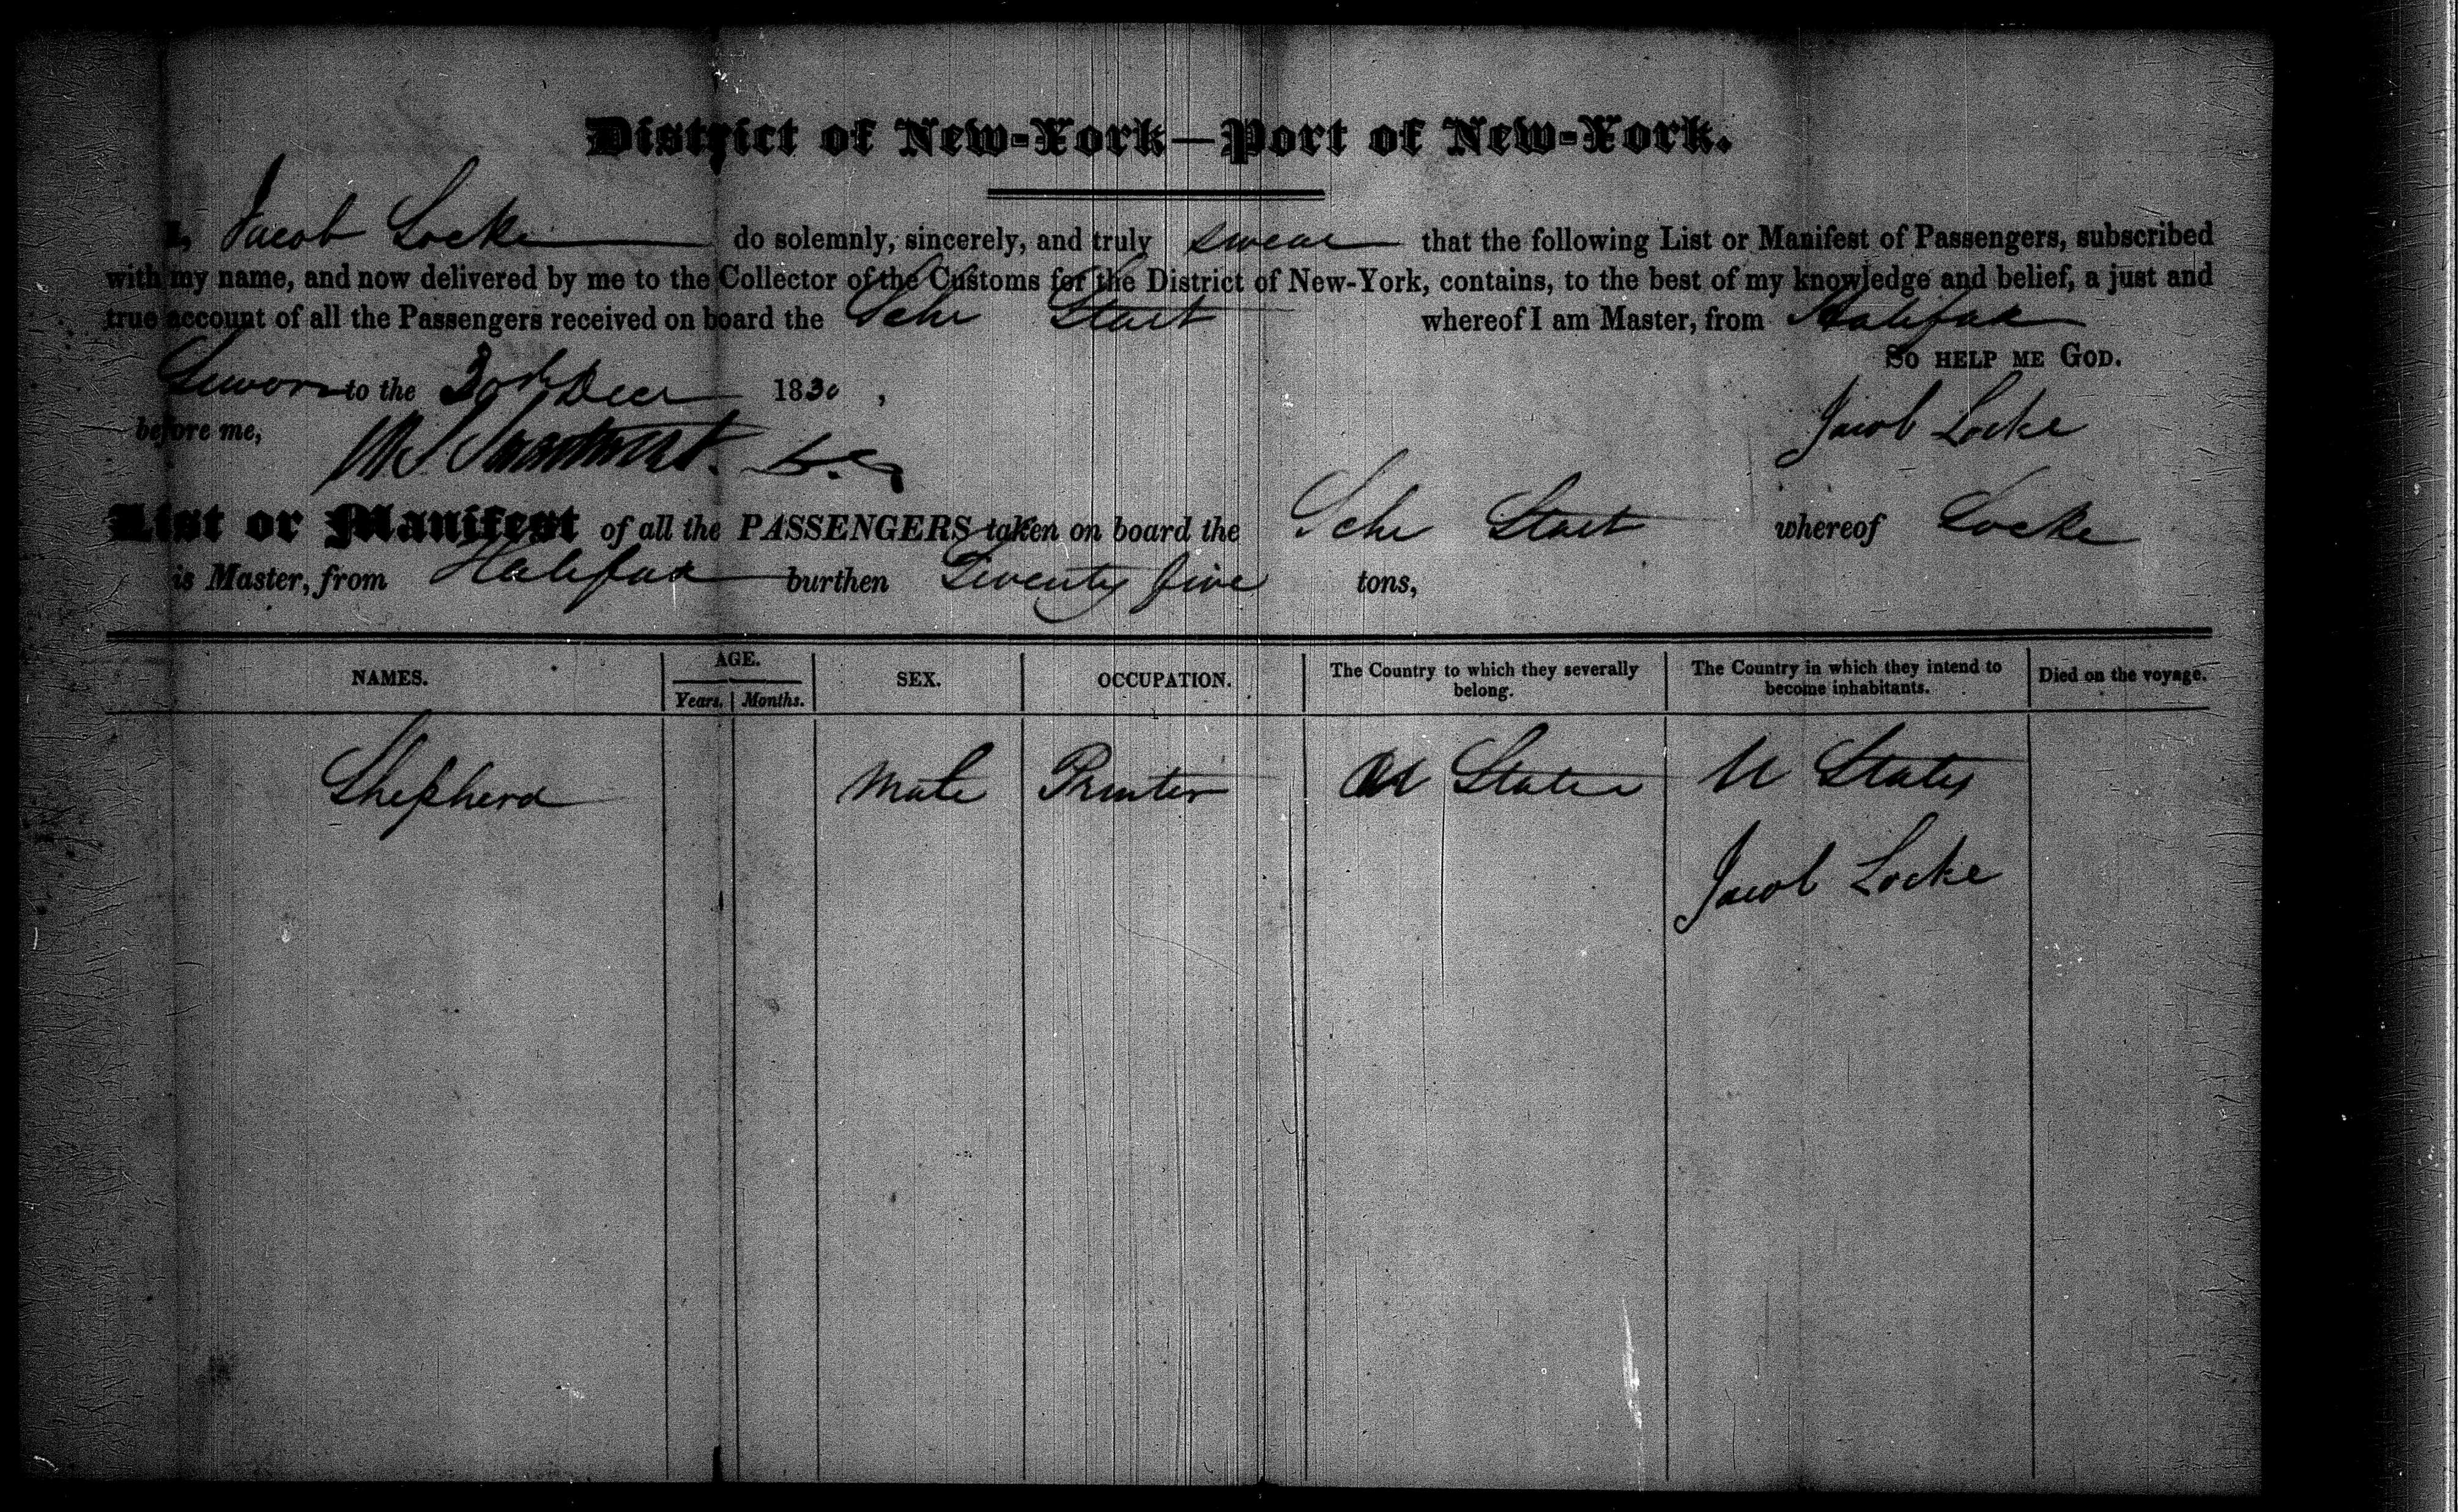 District of New-York—Port of New-York.
I, Jacob Locke do solemnly, sincerely, and truly swear that the following List or Manifest of Passengers, subscribed
with my name, and now delivered by me to the Collector of the Customs for the District of New-York, contains, to the best of my knowledge and belief, a just and
true account of all the Passengers received on board the Schr Start whereof I am Master, from Halifax
So help me God.
Sworn to the 30th Decr 1830,
before me, Jacob Locke
List or Manifest of all the PASSENGERS taken on board the Schr Start whereof Locke
is Master, from Halifax burthen Twenty five tons,
NAMES. AGE. Years. Months. SEX. OCCUPATION. The Country to which they severally belong. The Country in which they intend to become inhabitants. Died on the voyage.
Shepherd Male Printer U States U States
Jacob Locke